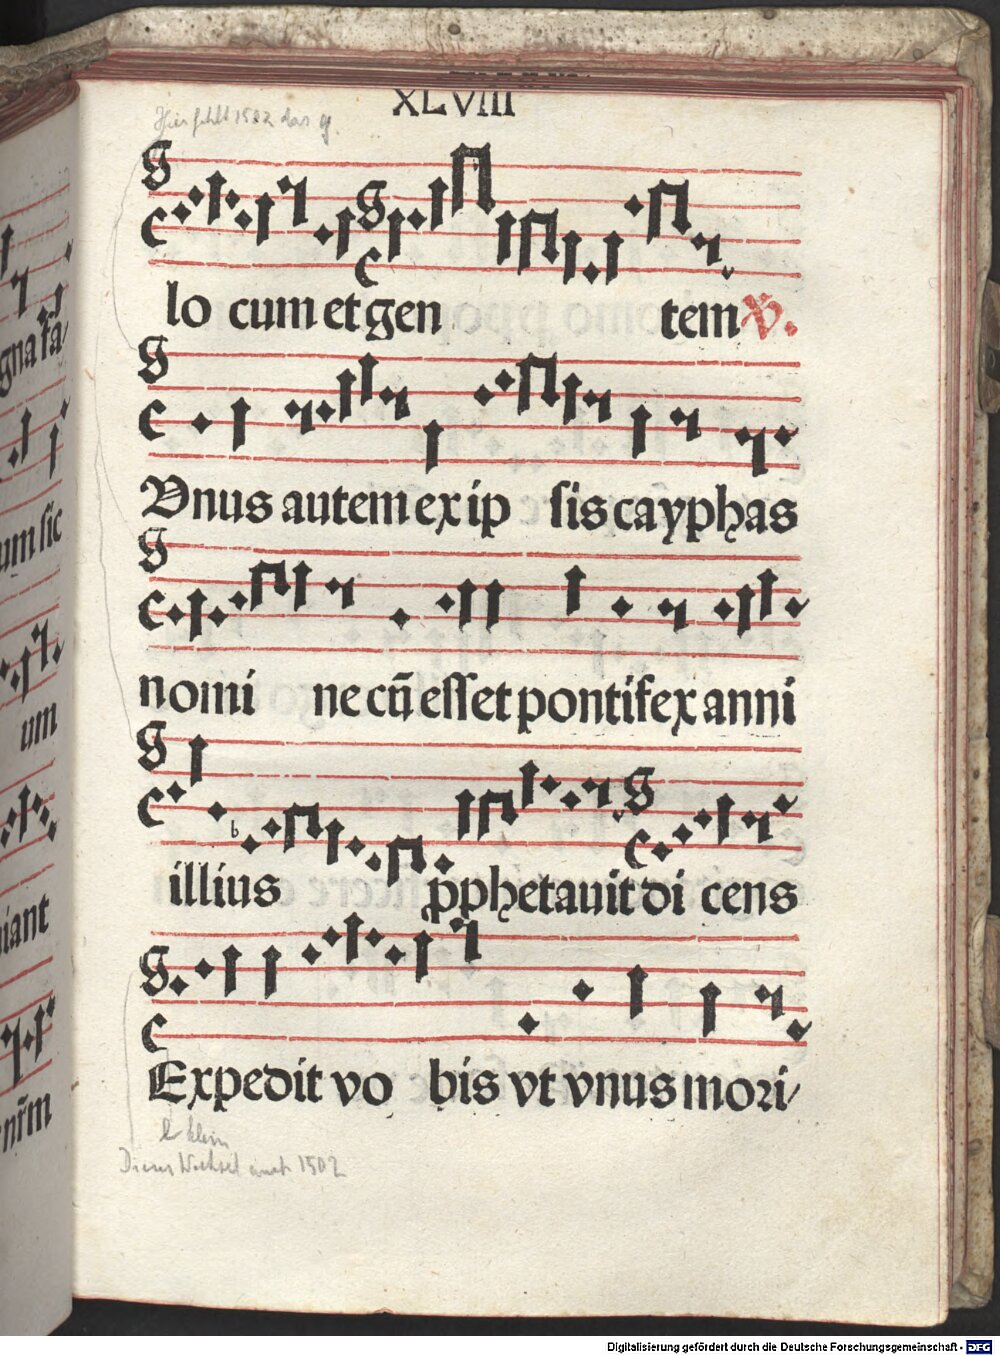 XLVIII
Hier fehlt 1502 das g.
lo cum et gen tem ℣.
Vnus autem ex ip sis cayphas
nomi ne cũ esset pontifex anni
illius p̱phetauit di cens
Expedit vo bis vt vnus mori/
b klein
Dieser Wechsel auch 1502
gna fa/
um sic
um
niant
Digitalisierung gefördert durch die Deutsche Forschungsgemeinschaft - DFG